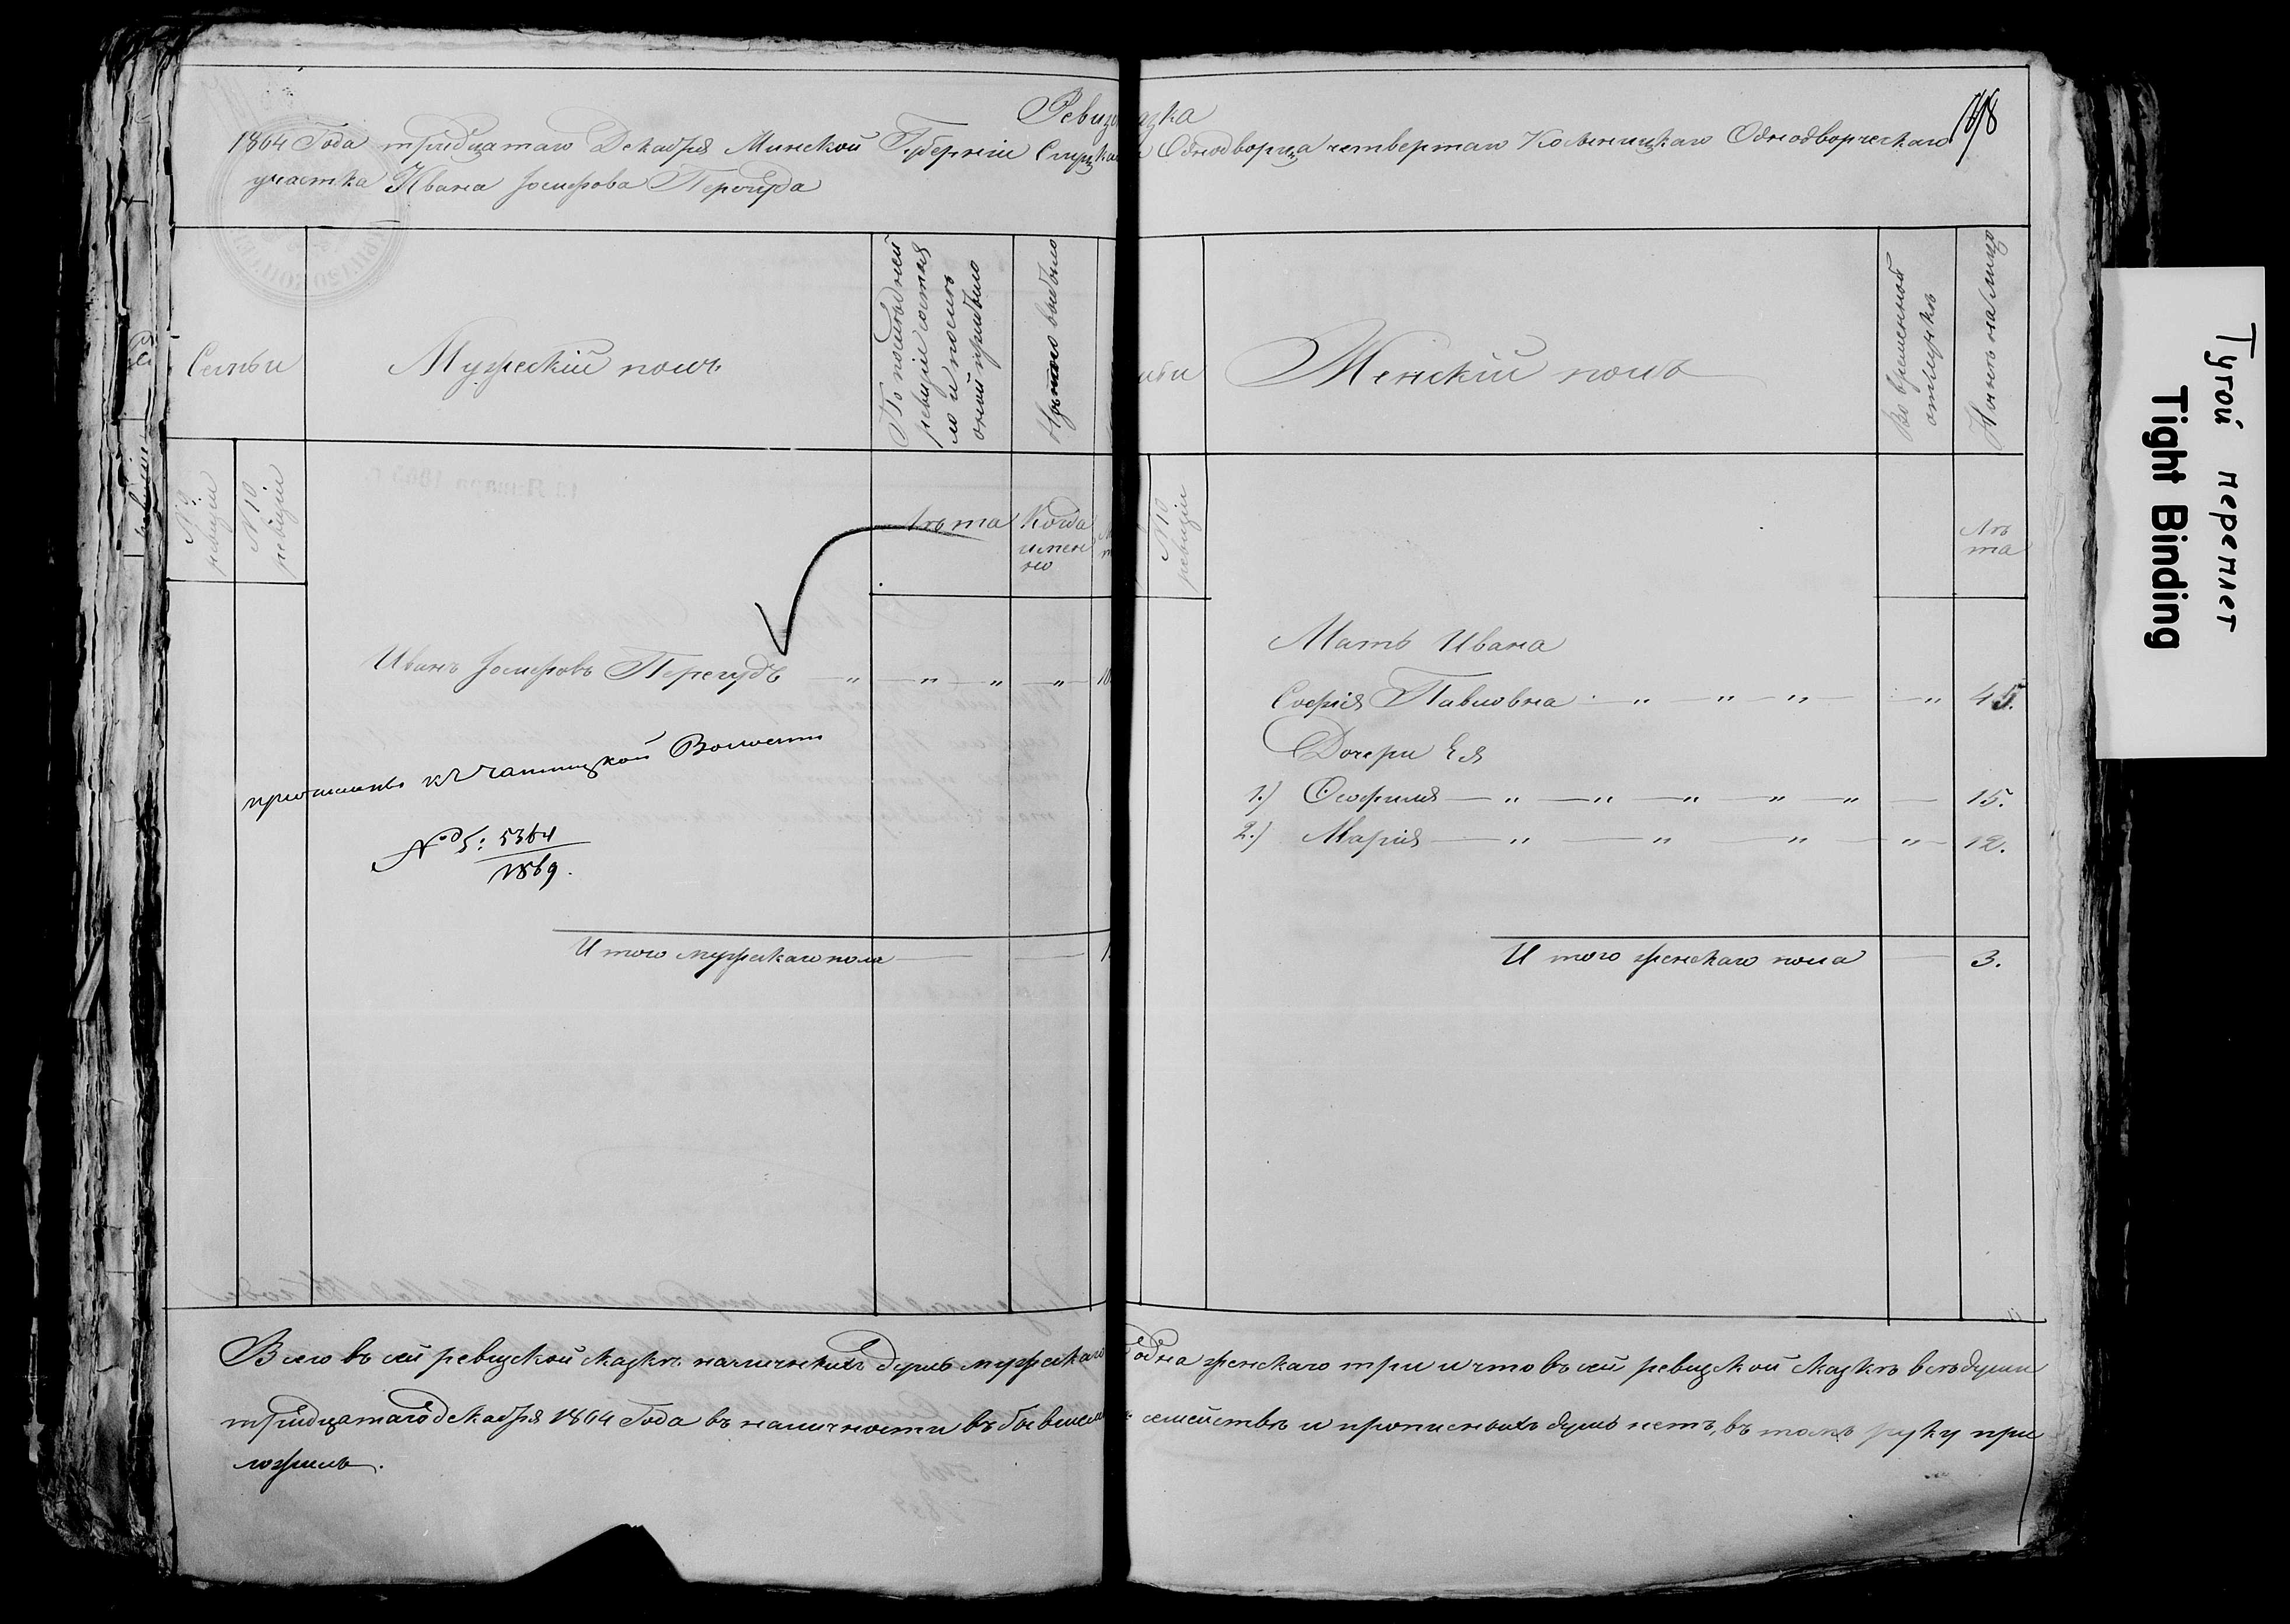 Ревиз азка
168
1864 Года тридцатаго Декабря Минской Губернии Слуцка Однодворца четвертаго Однодворческаго
участка Ивана Іосифова Перегуда
Семьи
Мужескій полъ
По последней
ревизіи состоя
ло и после
оной прибыло
Изъ того выбыло
ьи
Женскій полъ
Во временной
отлучке
Ныне на лицо
№ 9
ревизіи
№ 10
ревизіи
Лета
Когда
именно
№ 10
ревизіи
Ле
та
Иванъ Іосифовъ Перегудъ — " — " — " — " —
причисленъ къ Волости
№ 5364
1869.
Итого мужескаго пола
Мать Ивана
Софія Павловна — " — " — " — " 45.
Дочери Ея
1.) Феофилія — " — " — " — " — " — 15.
2.) Марія — " — " — " — " — 12.
Итого женскаго пола — 3.
Всего въ сей ревизской сказке наличныхъ душъ мужескаго одна женскаго три и что въ сей ревизской сказке все души
тридцатаго декабря 1864 Года въ наличности въ семействе и прописныхъ душъ нетъ, въ томъ руку при
ложилъ.
Тугой переплет
Tight Binding